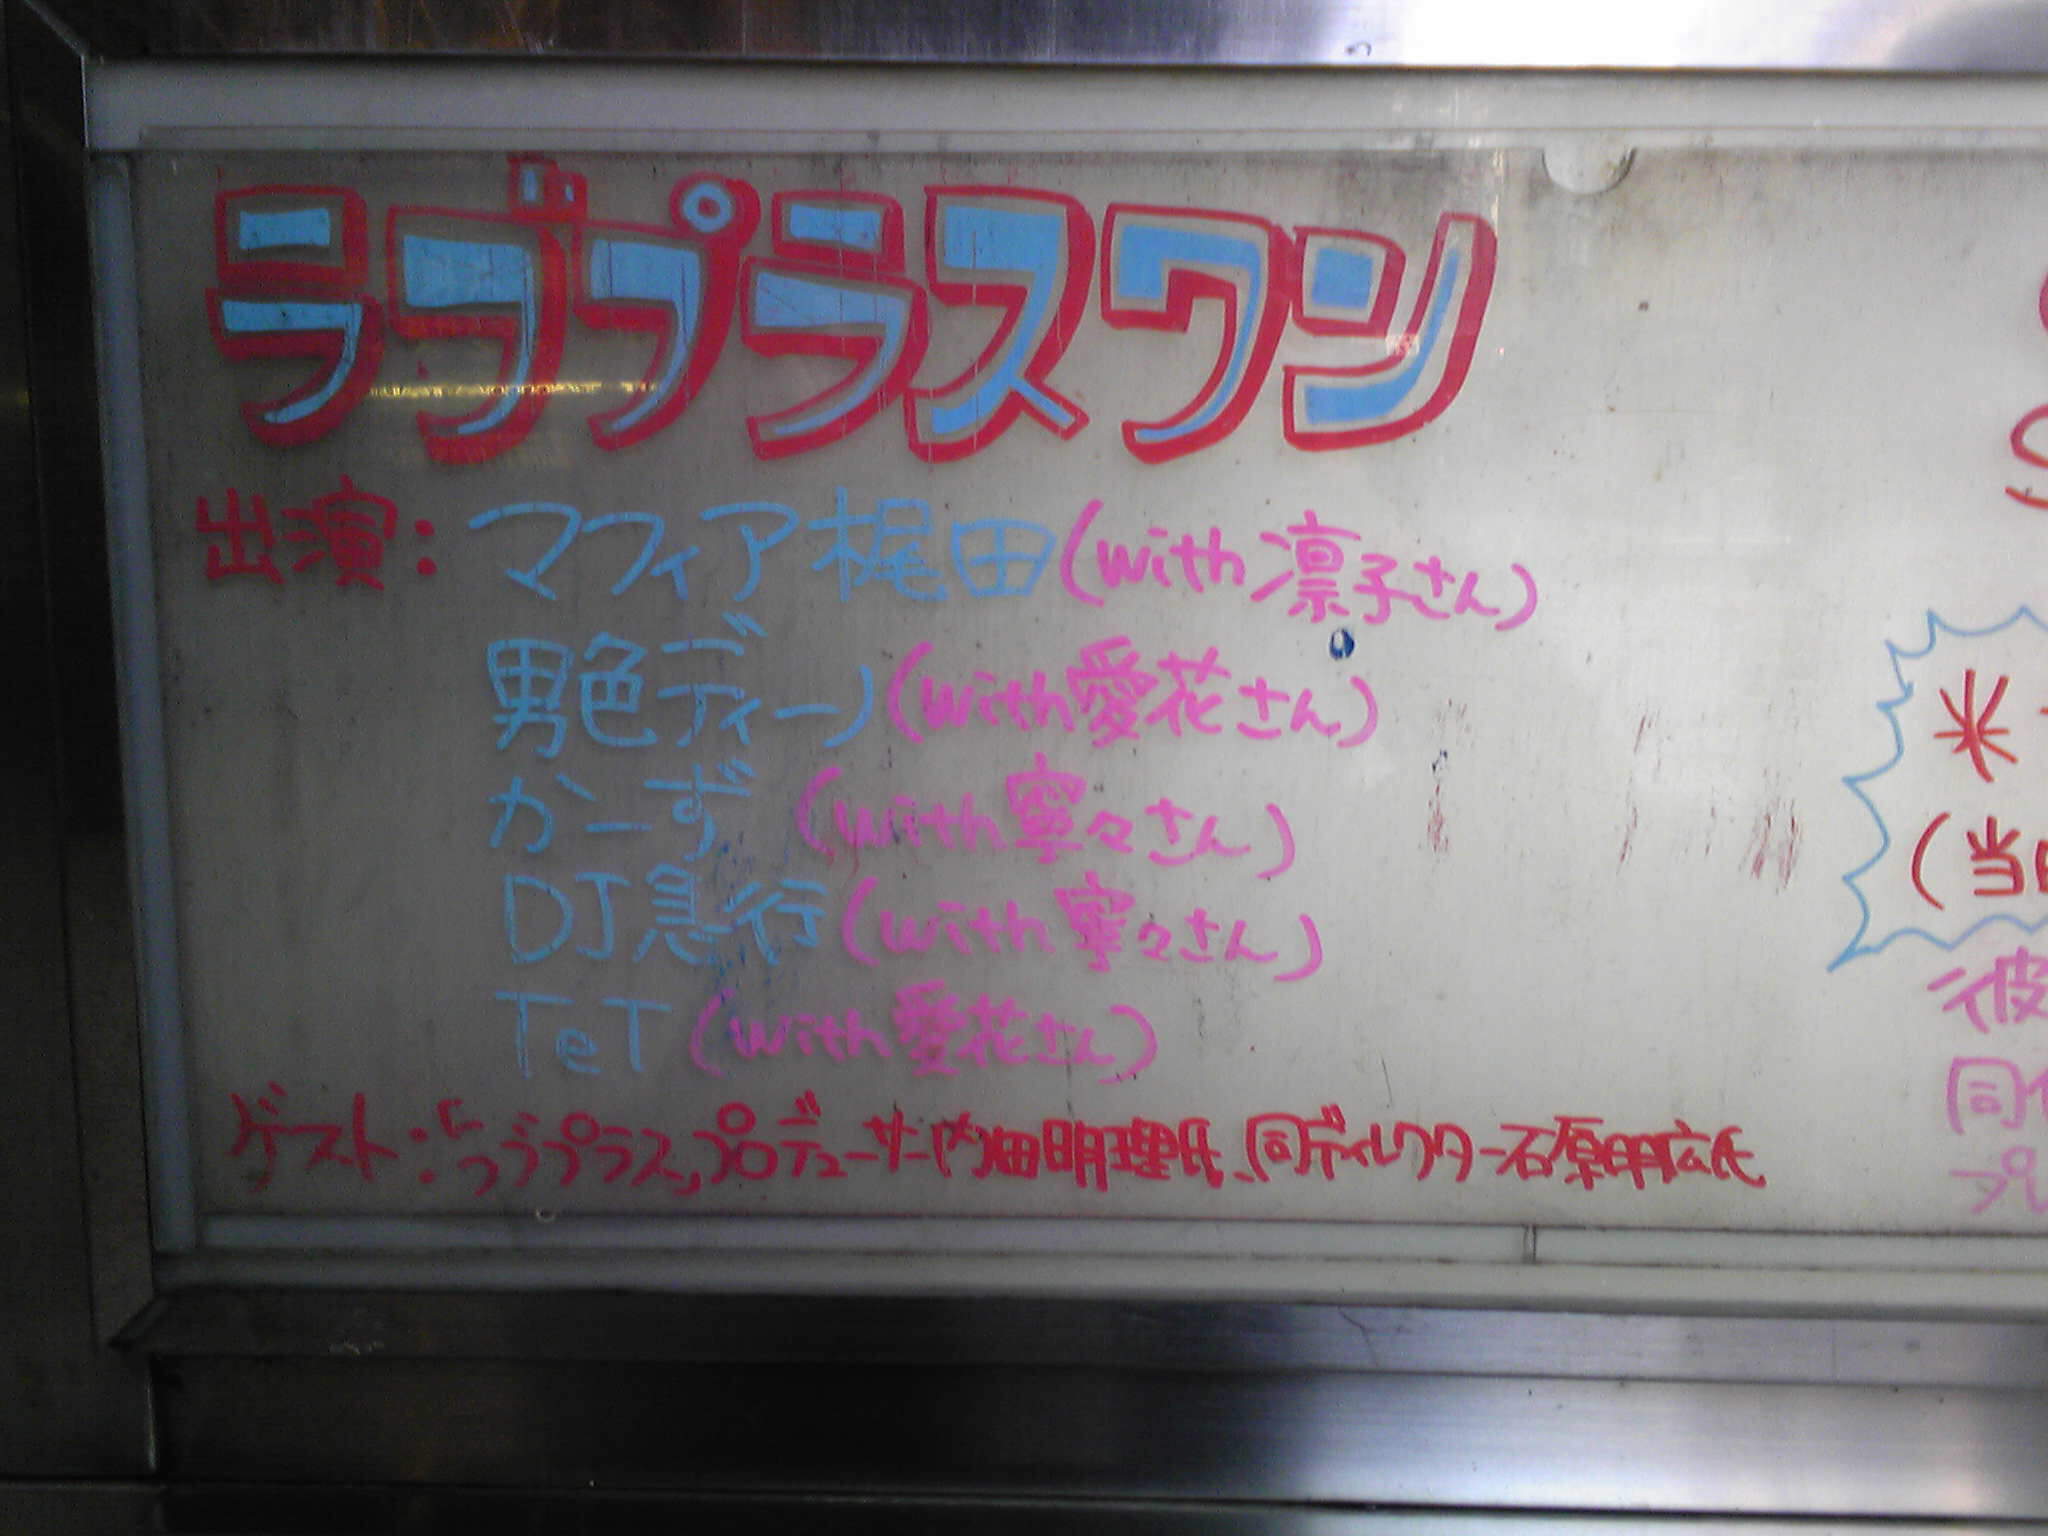 ラブプラスワン
出演: マフィア梶田(with凛子さん)
男色ディーノ(with愛花さん)
かーず(with寧々さん)
DJ急行(with寧々さん)
TeT(with愛花さん)
ゲスト:「ラブプラス」プロデューサー内田明理氏、同ディレクター石原明広氏
米
(当日
彼
同
プレ